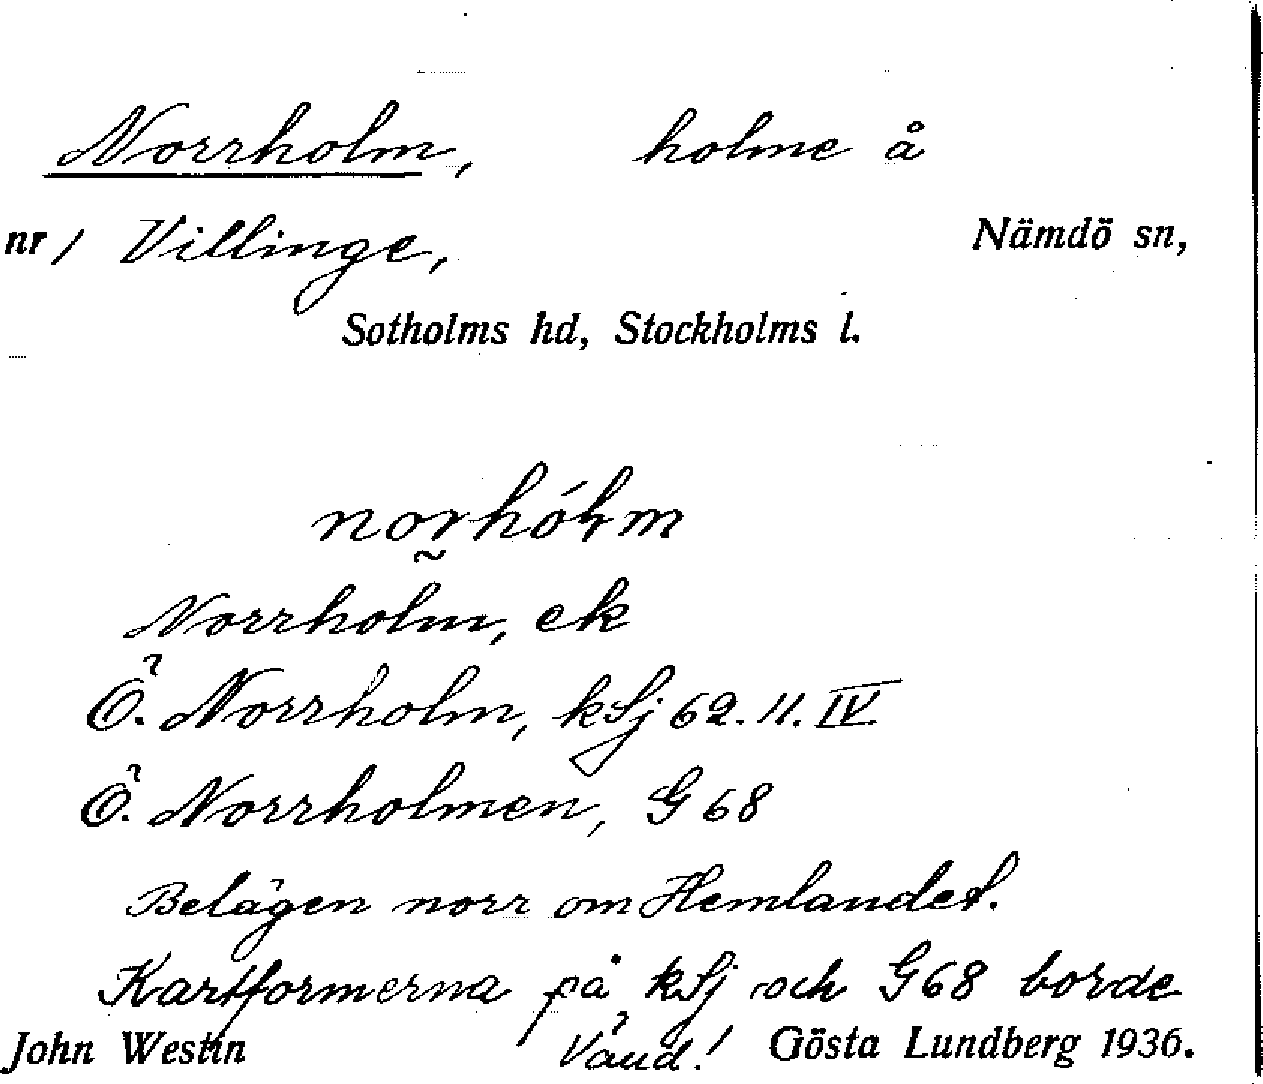 Norrholm, holme å
nr 1 Villinge, Nämdö sn,
Sotholms hd, Stockholms l.
norhólm
Norrholm, ek
Ö. Norrholm, kSj 62. 11. IV.
Ö. Norrholmen, G 68
Belägen norr om Hemlandet.
Kartformerna på kSj och G 68 borde
John Westin Vänd! Gösta Lundberg 1936.